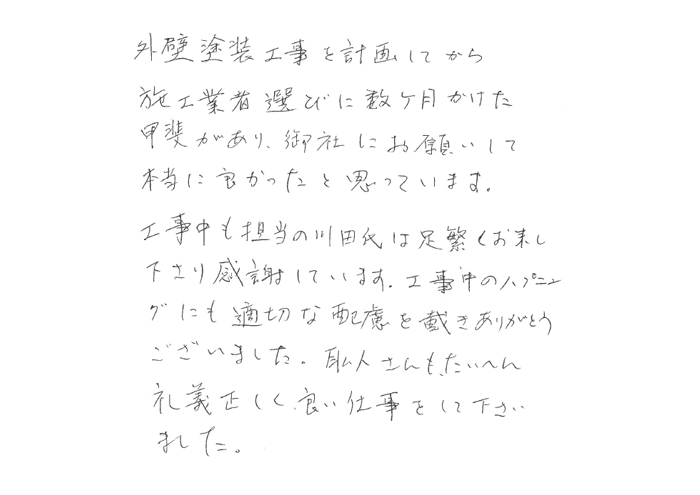 外壁塗装工事を計画してから
施工業者選びに数ケ月かけた
甲斐があり、御社にお願いして
本当に良かったと思っています。
工事中も担当の川田氏は足繁くお来し
下さり感謝しています。工事中のハプニン
グにも適切な配慮を戴きありがとう
ございました。職人さんも、たいへん
礼義正しく、良い仕事をして下さい
ました。